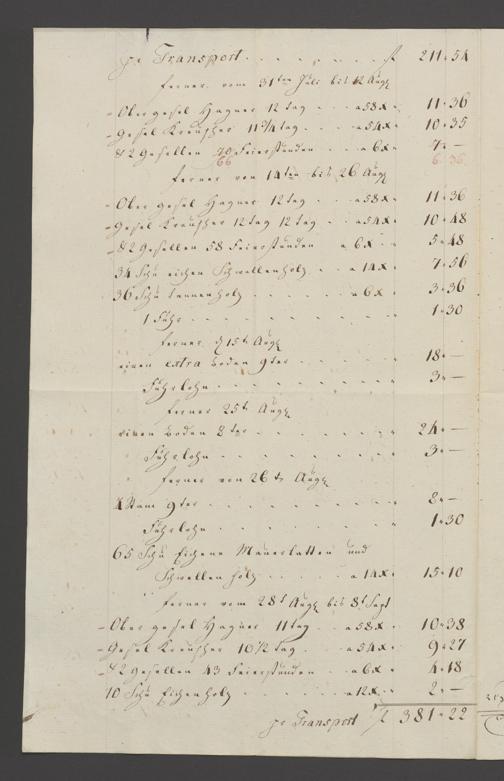 pr Transport . . . . . . f 211 " 54
ferner vom 31ten Juli bis 12 Aug
- Ober gesel Hagner 12 tag . . . a 58x " 11 " 36
- Gesel Kreuscher 11 3/4 tag . . . a 54x " 10 " 35
- d 2 Gesellen 70 Feierstunden . . a 6x " 7 " —
66 6 " 36
ferner von 14ten bis 26 Aug
- Ober gesel Hagner 12 tag . . . a 58x " 11 " 36
- Gesel Kreuscher 12 tag 12 tag . . . a 54x " 10 " 48
- d 2 Gesellen 58 Feierstunden a 6x " 5 " 48
34 Schu eichen Schwellenholz . . a 14x " 7 " 56
36 Schu tannenholz . . . . . a 6x " 3 " 36
1 Fuhr . . . . . . . . " 1 " 30
ferner d 15t Aug
einen extra boden 9ter . . . . . " 18 " —
Fuhrlohn . . . . . . . " 3 " —
ferner 25t Aug
einen boden 8ter . . . . . . " 24 " —
Fuhrlohn . . . . . . . " 3 " —
ferner von 26t Aug
4 Stam 9ter . . . . . . . " 2 " —
Fuhrlohn . . . . . . . " 1 " 30
65 Schu Eichene Mauerlatten und
Schwellen holz . . . . . a 14x " 15 " 10
ferner vom 28t Aug bis 8t Sept
- Ober gesel Hagner 11 tag . . . a 58x " 10 " 38
- Gesel Kreuscher 10 1/2 tag . . . a 54x " 9 " 27
- d 2 gesellen 43 Feierstunden . . a 6x " 4 " 18
10 Schu Eichenholz . . . . . a 12x " 2 " —
pr Transport f 381 " 22